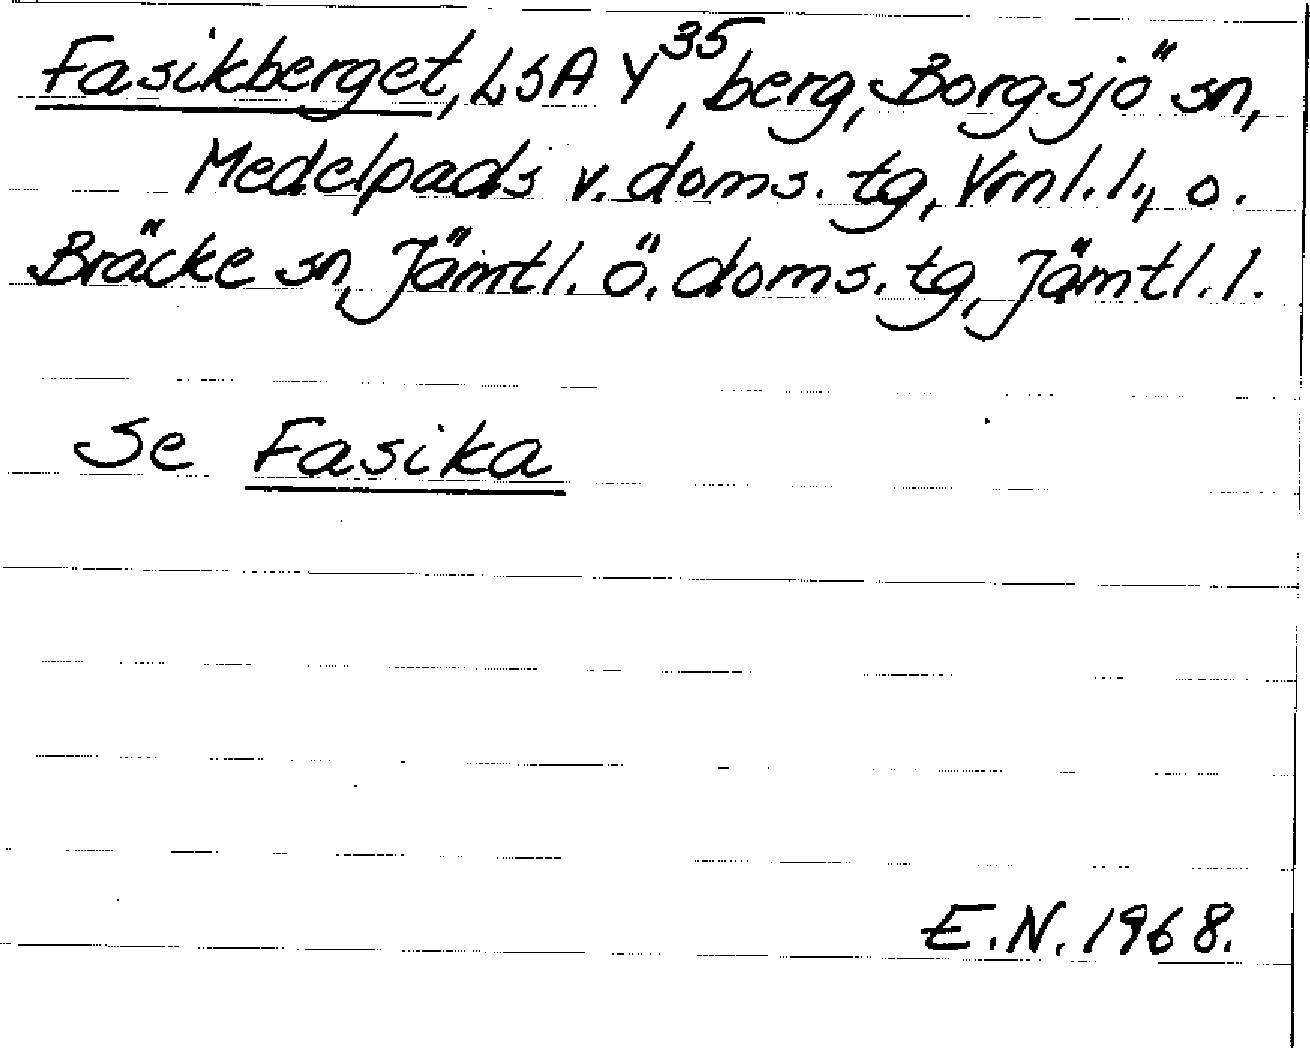 Fasikberget, LSA Y³⁵, berg, Borgsjö sn,
Medelpads v. doms. tg, Vrnl. l., o.
Bräcke sn, Jämtl. ö. doms. tg, Jämtl. l.
Se Fasika
E.N. 1968.